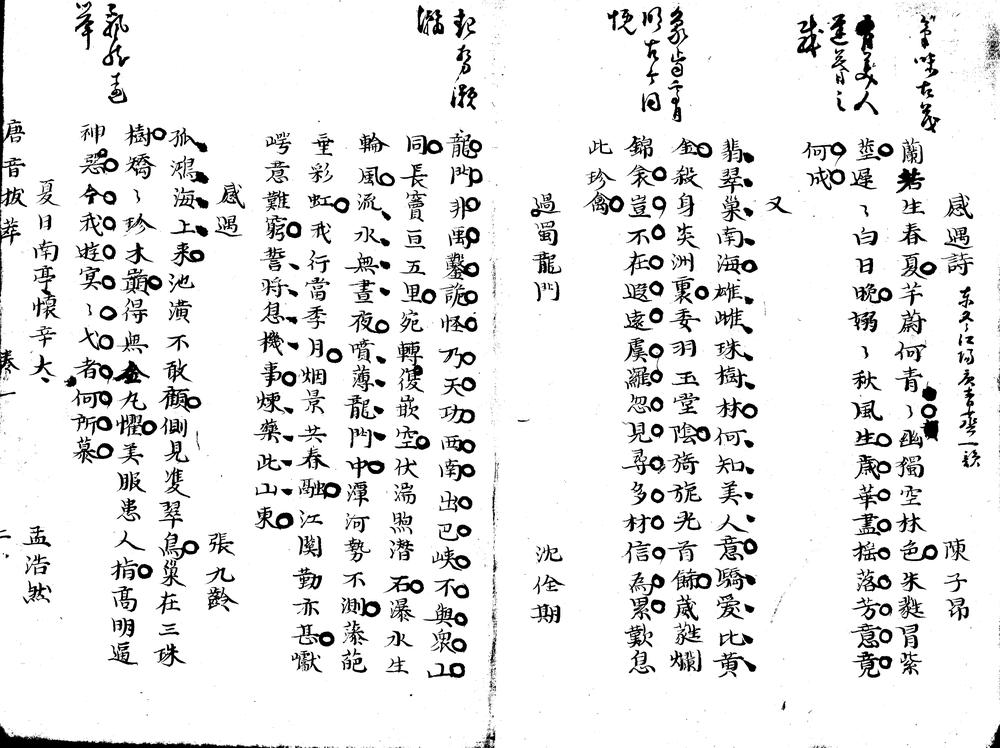 感遇詩 陳子昂
蘭若生春夏芊蔚何青〻幽獨空林色朱蕤冒紫
莖遲〻白日晚嫋〻秋風生歲華盡搖落芳意竟
何成
又
翡翠巢南海雄雌珠樹林何知美人意驕愛比黃
金殺身炎洲裏委羽玉堂陰旖旎光首飾葳蕤爛
錦衾豈不在遐遠虞羅忽見尋多材信為累歎息
此珍禽
過蜀龍門 沈佺期
龍門非禹鑿詭怪乃天功西南出巴峽不與衆山
同長竇亘五里宛轉復嵌空伏湍煦潛石瀑水生
輪風流水無晝夜噴薄龍門中潭河勢不測藻葩
垂彩虹我行當季月烟景共春融江関勤亦甚巘
崿意難窮誓將息機事煉藥此山東
感遇 張九齡
孤鴻海上来池潢不敢顧側見雙翠鳥巢在三珠
樹矯〻珍木巔得無金丸懼美服患人指高明逼
神惡今我遊冥〻弋者何所慕
夏日南亭懷辛大 孟浩然
唐音拔萃 卷一 二